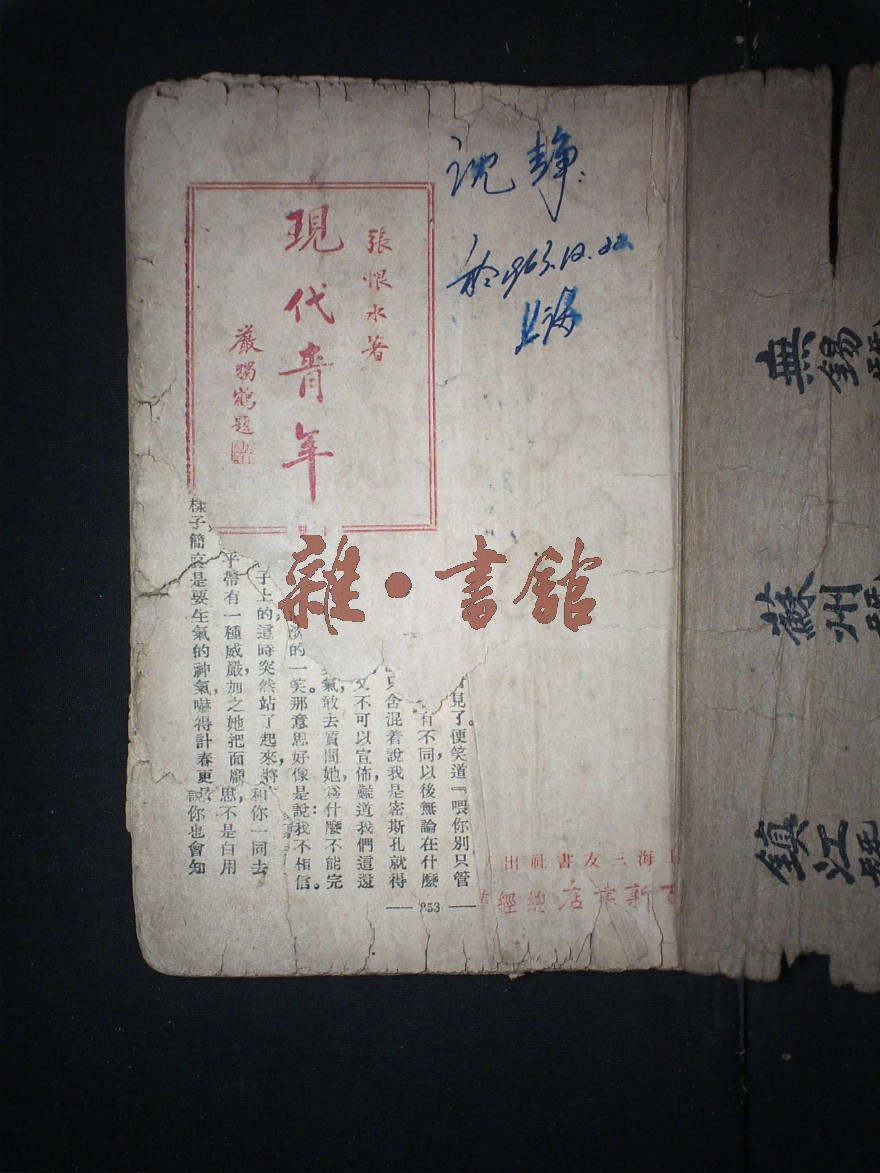 張恨水著
現代青年
嚴獨鶴題
沈静
於1963.12.
上海
雜·書館
見了。便笑道『喂你別只管
有不同以後無論在什麼
含混着說我是密斯孔就得
又不可以宣佈，難道我們這還
氣，敢去質問她，爲什麼不能完
的一笑。那意思好像是說：我不相信。
子上的，這時突然站了起來，將
和你一同去
乎帶有一種威嚴，加之她把面龐
思，不是白用
樣子，簡直是要生氣的神氣，嚇得計春更
說你也會知
— 853 —
海三友書社出
新業店總經
無錫
蘇州
鎮江